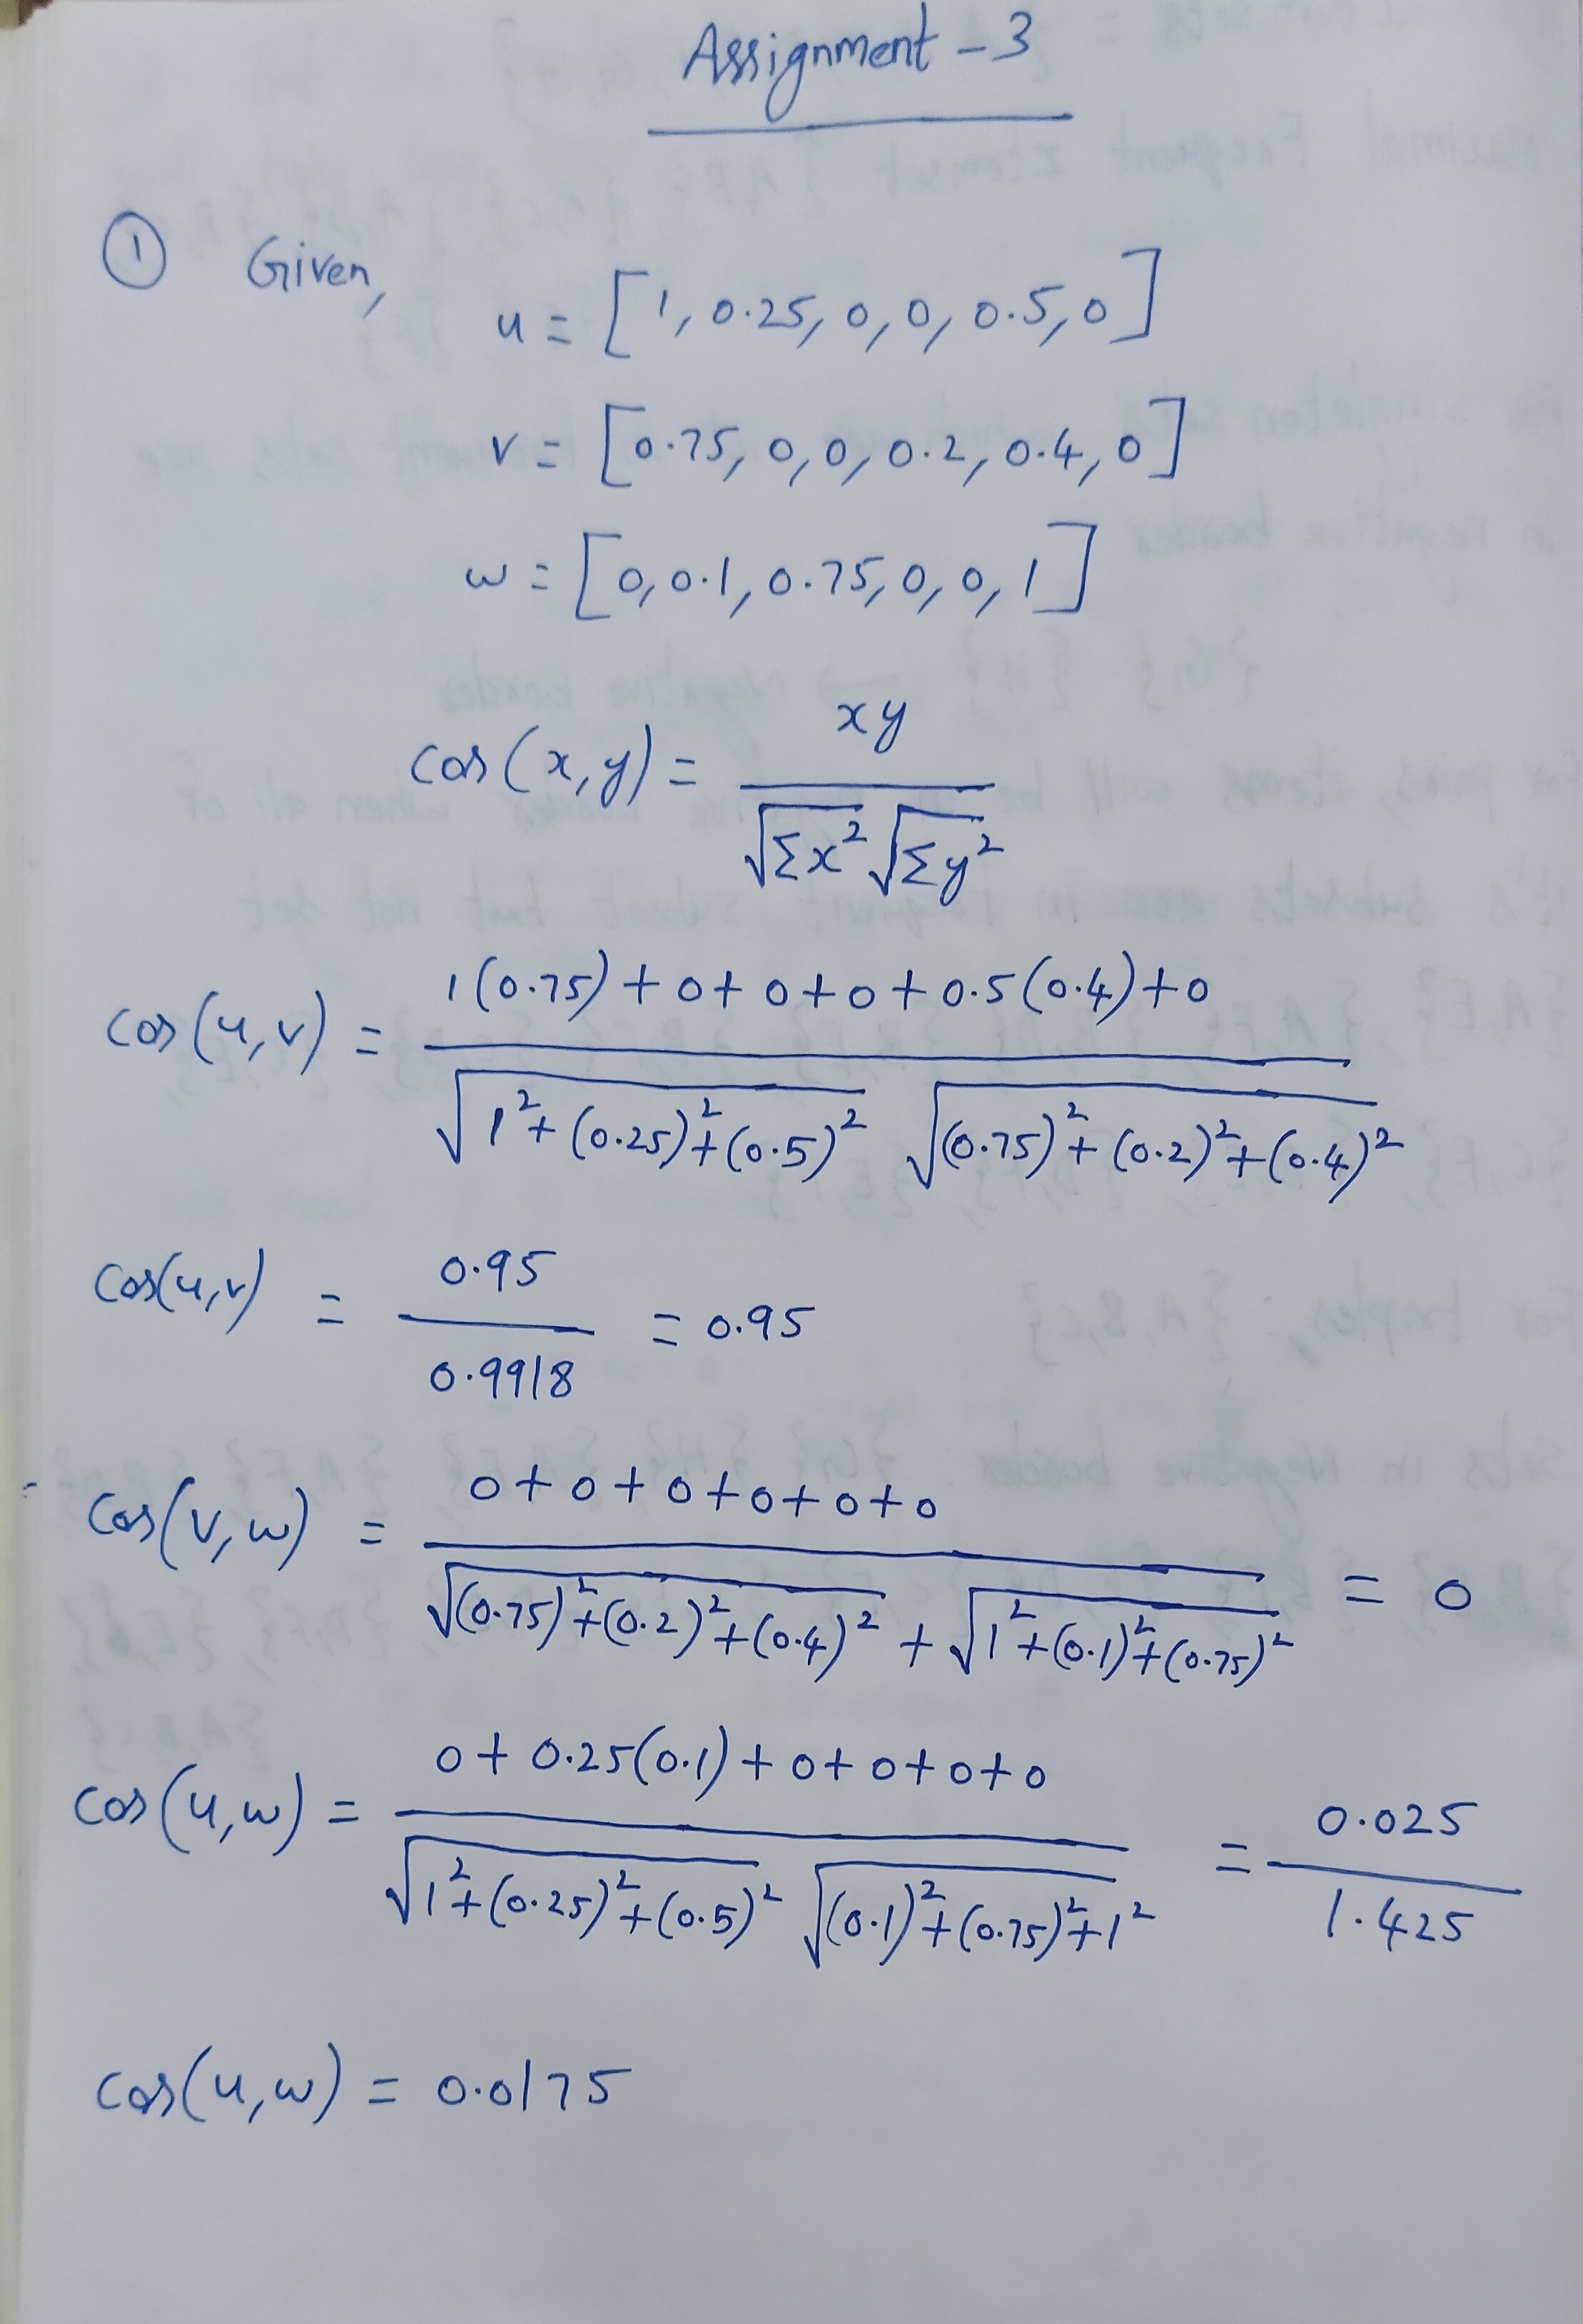 Assignment - 3
① Given,
u = [1, 0.25, 0, 0, 0.5, 0]
v = [0.75, 0, 0, 0.2, 0.4, 0]
w = [0, 0.1, 0.75, 0, 0, 1]
cos(x,y) = xy / √Σx² √Σy²
cos(u,v) = 1(0.75) + 0 + 0 + 0 + 0.5(0.4) + 0 / √1² + (0.25)² + (0.5)² √(0.75)² + (0.2)² + (0.4)²
cos(u,v) = 0.95 / 0.9918 = 0.95
cos(v,w) = 0 + 0 + 0 + 0 + 0 + 0 / √(0.75)² + (0.2)² + (0.4)² + √1² + (0.1)² + (0.75)² = 0
cos(u,w) = 0 + 0.25(0.1) + 0 + 0 + 0 + 0 / √1² + (0.25)² + (0.5)² √(0.1)² + (0.75)² + 1² = 0.025 / 1.425
cos(u,w) = 0.0175